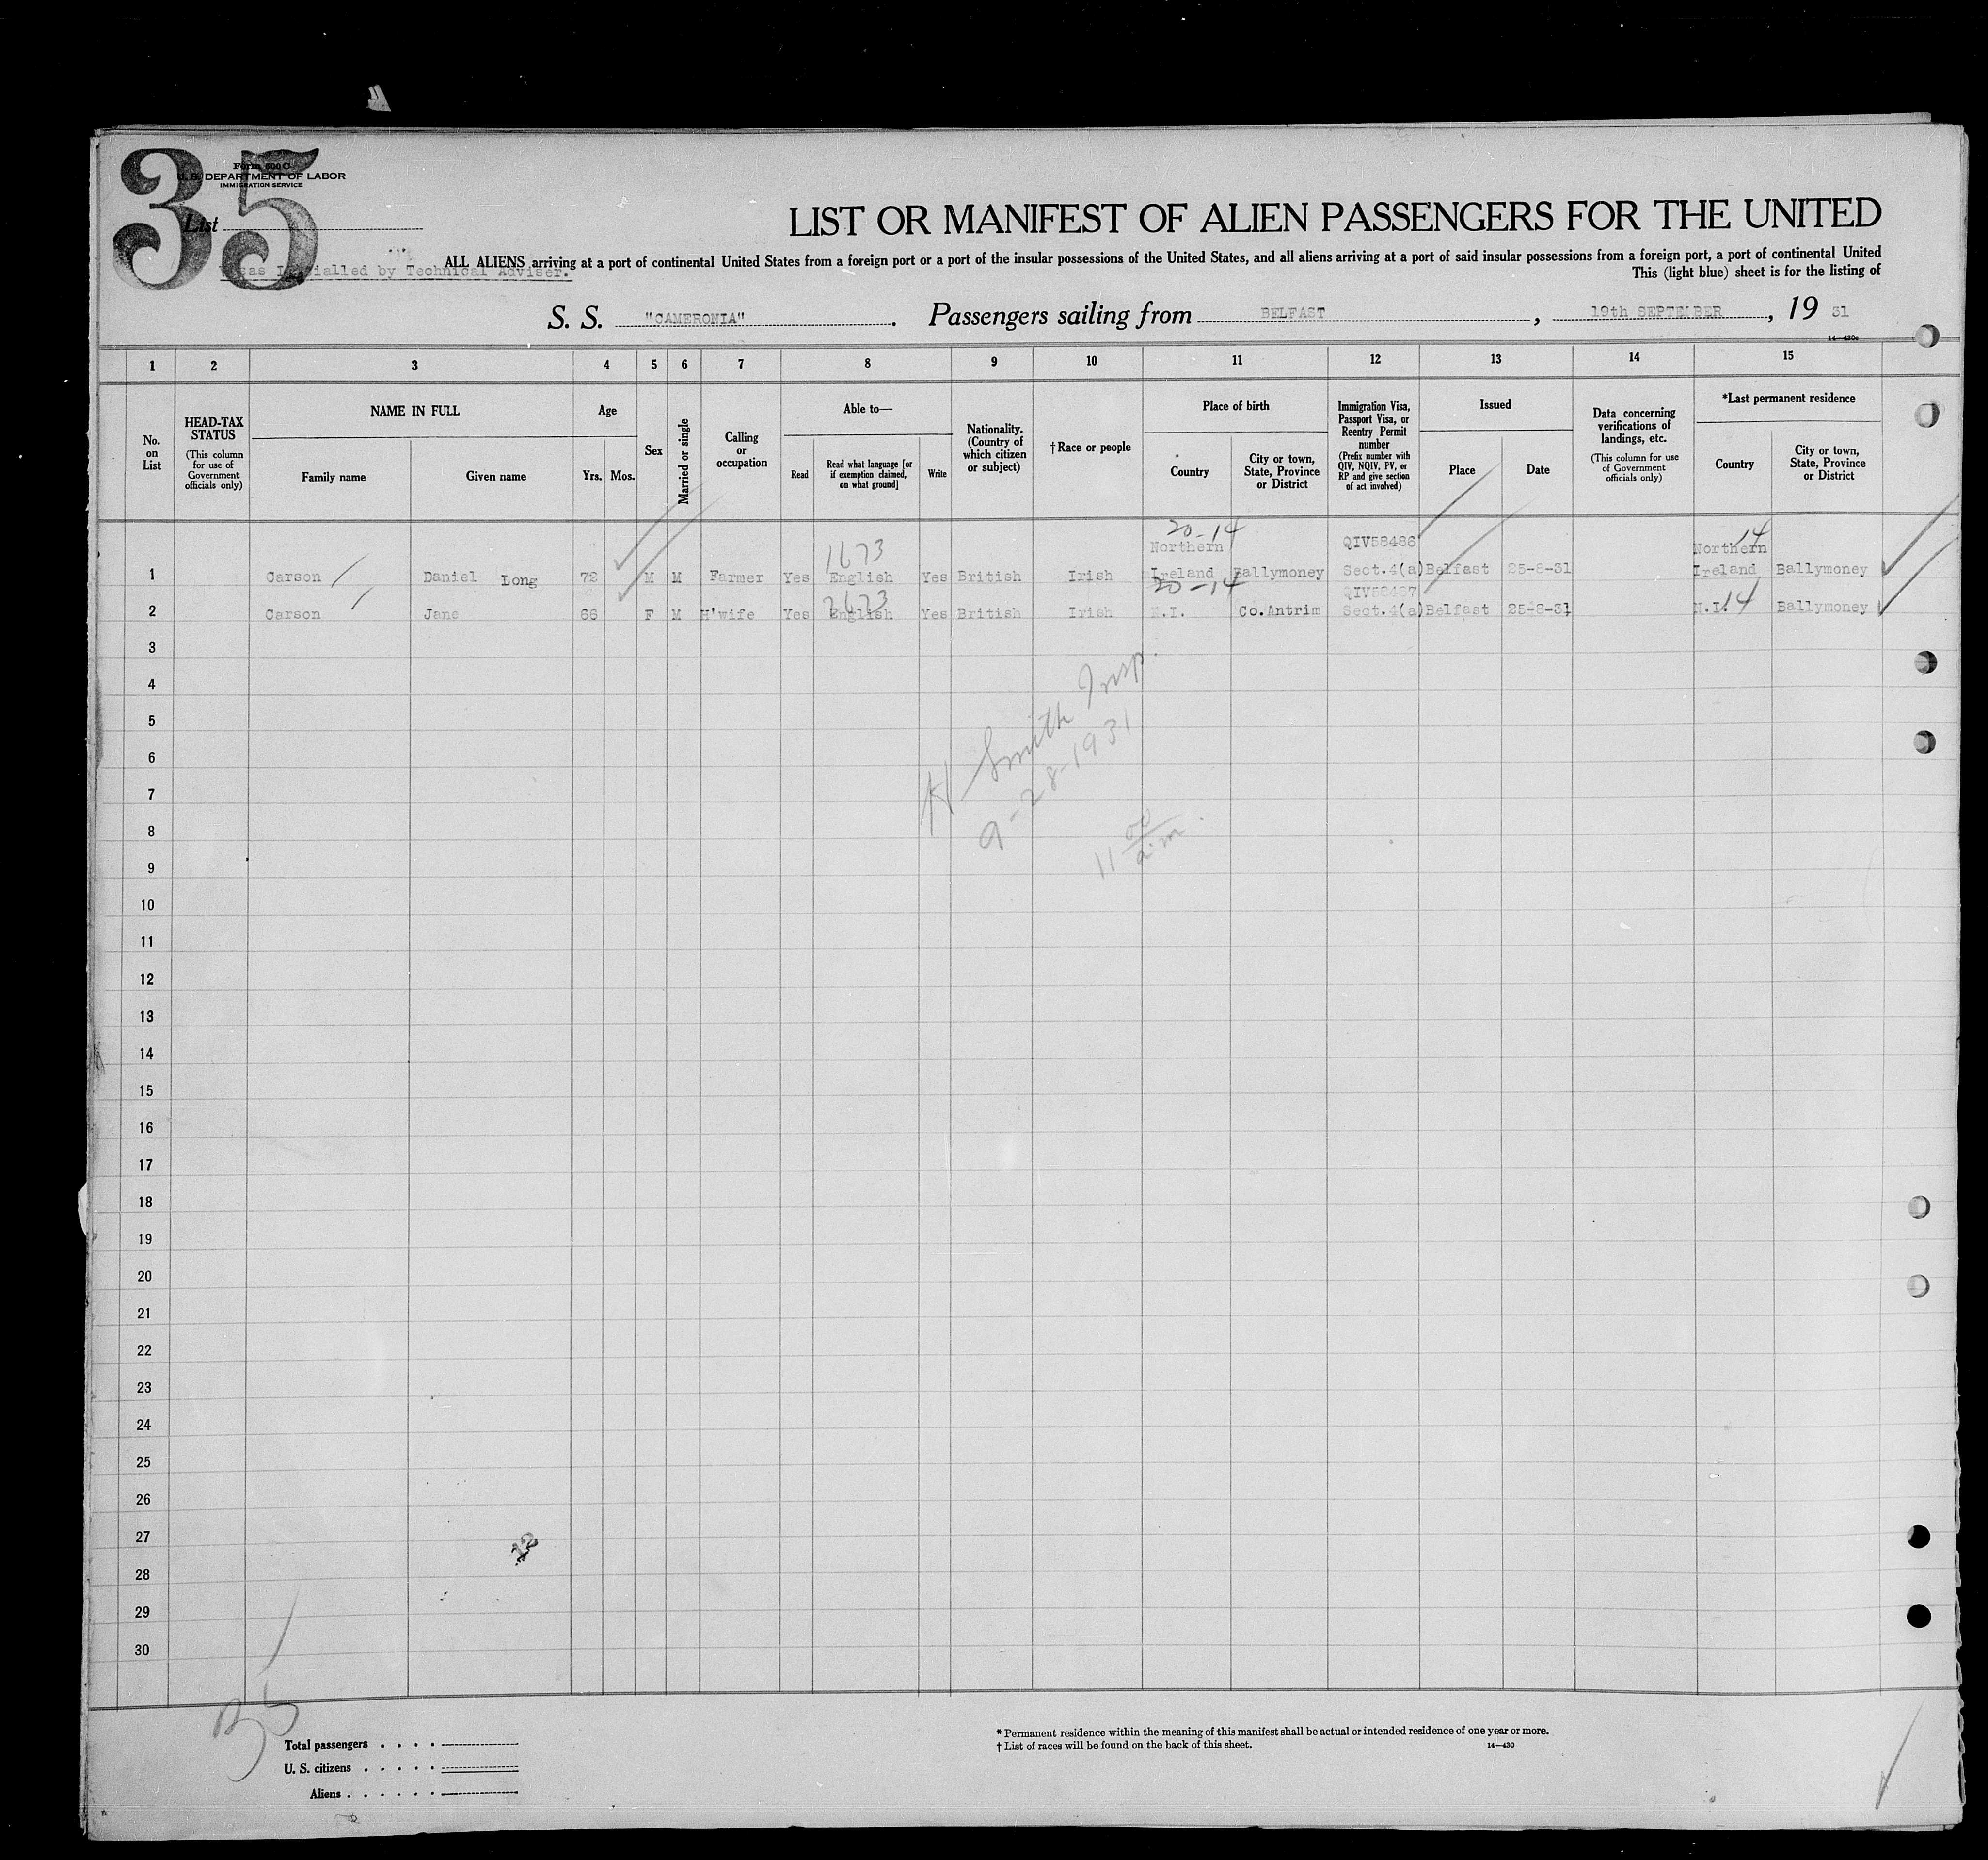 35
Form 500 C
U. S. DEPARTMENT OF LABOR
IMMIGRATION SERVICE
List
LIST OR MANIFEST OF ALIEN PASSENGERS FOR THE UNITED
ALL ALIENS arriving at a port of continental United States from a foreign port or a port of the insular possessions of the United States, and all aliens arriving at a port of said insular possessions from a foreign port, a port of continental United
by Technical Adviser.
This (light blue) sheet is for the listing of
S. S. "CAMERONIA". Passengers sailing from BELFAST, 19th SEPTEMBER, 19 31
14—430c
1 2 3 4 5 6 7 8 9 10 11 12 13 14 15
No. on List
HEAD-TAX STATUS
(This column for use of Government officials only)
NAME IN FULL
Family name
Given name
Age
Yrs. Mos.
Sex
Married or single
Calling or occupation
Able to—
Read
Read what language [or if exemption claimed, on what ground]
Write
Nationality. (Country of which citizen or subject)
†Race or people
Place of birth
Country
City or town, State, Province or District
Immigration Visa, Passport Visa, or Reentry Permit number
(Prefix number with QIV, NQIV, PV, or RP and give section of act involved)
Issued
Place
Date
Data concerning verifications of landings, etc.
(This column for use of Government officials only)
*Last permanent residence
Country
City or town, State, Province or District
1673 20-14 Northern QIV58486 Northern 14
1 Carson Daniel Long 72 M M Farmer Yes English Yes British Irish Ireland Ballymoney Sect.4(a) Belfast 25-8-31 Ireland Ballymoney
2673 20-14 QIV58487
2 Carson Jane 66 F M H'wife Yes English Yes British Irish N.I. Co.Antrim Sect.4(a) Belfast 25-8-31 N.I. 14 Ballymoney
3
4
5
6
7
8
9
10
11
12
13
14
15
16
17
18
19
20
21
22
23
24
25
26
27
28
29
30
H Smith Insp.
9-28-1931
11 00 a.m.
Total passengers . . . .
U. S. citizens . . . . .
Aliens . . . . . .
* Permanent residence within the meaning of this manifest shall be actual or intended residence of one year or more.
† List of races will be found on the back of this sheet.
14—430